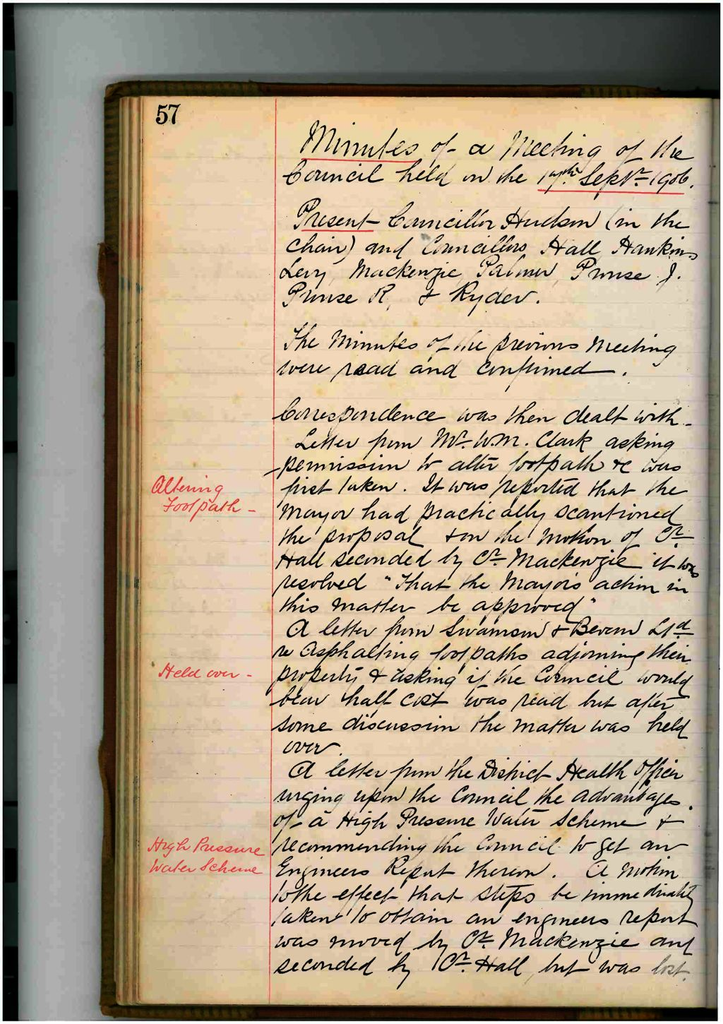 57
Minutes of a Meeting of the
Council held on the 17th Sept. 1906.
Present Councillor Hudson (in the
chair) and Councillors Hall Hankins
Levy Mackenzie Palmer Prouse J.
Prouse R, & Ryder.
The Minutes of the previous Meeting
were read and confirmed.
Correspondence was then dealt with -
Letter from Mr. W.M. Clark asking
permission to alter footpath &c was
Altering
Footpath -
first taken. It was reported that the
Mayor had practically scantioned
the proposal & on the motion of Cr.
Hall seconded by Cr. Mackenzie it was
resolved "That the Mayors action in
this matter be approved"
A letter from Swainson & Bevan Ltd
re Asphalting footpaths adjoining their
Held over -
property & asking if the Council would
bear half cost was read but after
some discussion the matter was held
over.
A letter from the District Health Officer
urging upon the Council the advantages
of a High Pressure Water Scheme &
High Pressure
Water Scheme
recommending the Council to get an
Engineers Report thereon. A motion
to the effect that steps be immediately
taken to obtain an engineers report
was moved by Cr. Mackenzie and
seconded by Cr. Hall, but was lost.